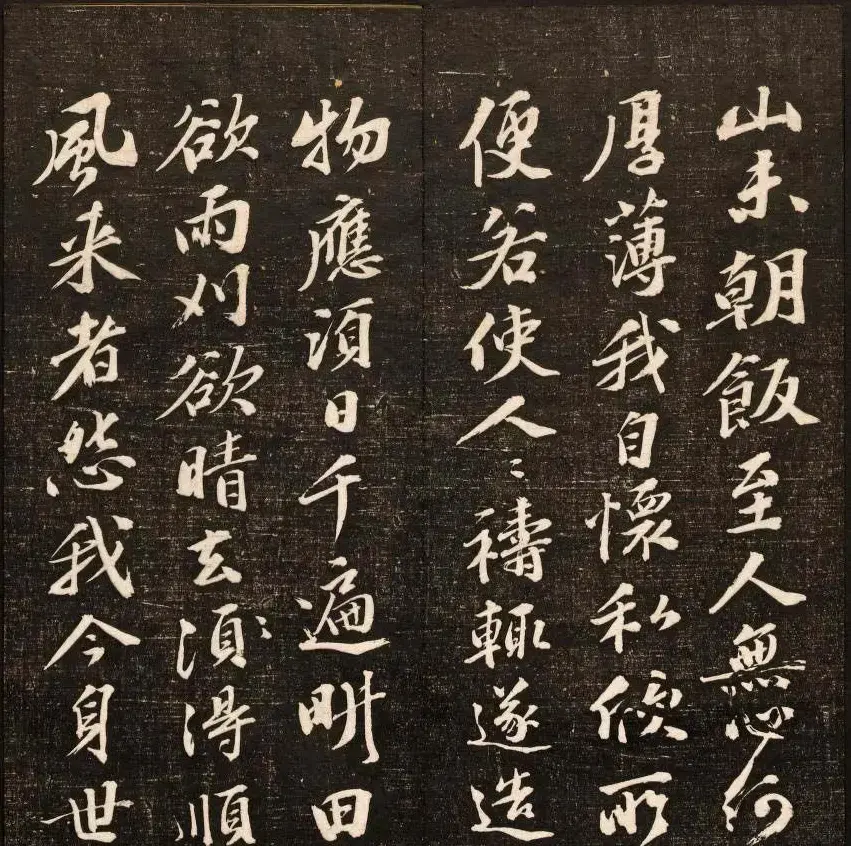 山未朝飯至人無心何
厚薄我自懷私所
便若使人〻禱輒遂造
物應須日千遍耕田
欲雨刈欲晴去須得順
風来者怨我今身世